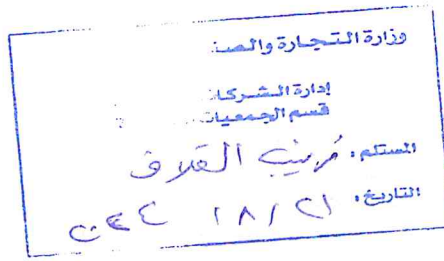 وزارة التجارة والصن
إدارة الشركا
قسم الجمعيات
المستلم: القلاف
التاريخ: ٢١ / ٨ /